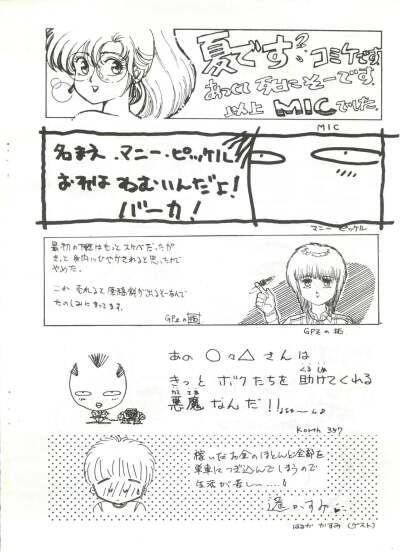 夏です? コミケです
あつくて死にそーです。
以上 MICでした。
MIC
名まえ.マニー・ピッケル
おれは ねむいんだよ!
バーカ!
マニー ピッケル
最初の下書はもっとスケベだったが
きっと
と思ったので
やめた。
これ 売れるて原稿料が
たのしみにまってます。
GPZの拓
GPZの拓
あの 〇々△さんは
きっと ボクたちを 助けてくれる
悪魔なんだ!!
Korth 357
稼いだお金のほとんど全部を
単車につぎ込んでしまうので
生活が苦しい……!
遥かすみ
はるか かすみ (ゲスト)